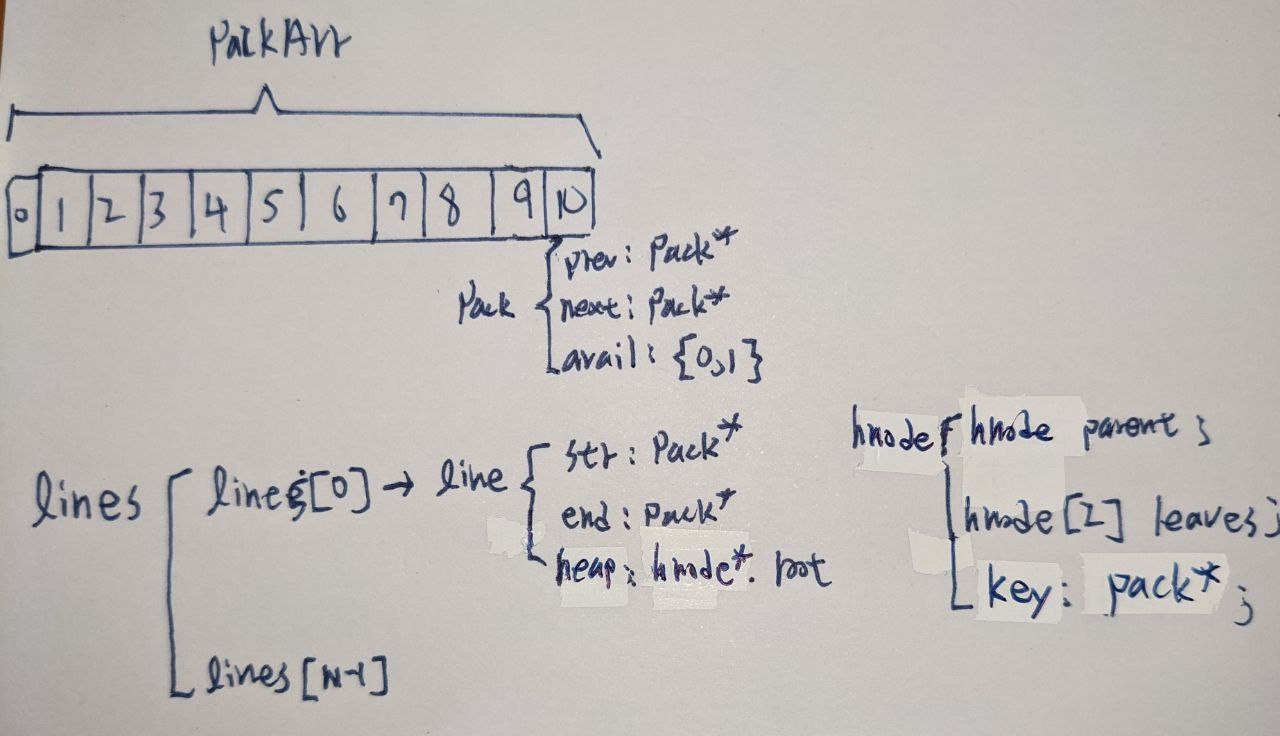 PackArr
0 1 2 3 4 5 6 7 8 9 10
Pack
prev: Pack*
next: Pack*
avail: {0,1}
lines
lines[0] → line
str: Pack*
end: Pack*
heap: hnode*. root
lines[N-1]
hnode
hnode parent;
hnode[2] leaves;
key: pack*;